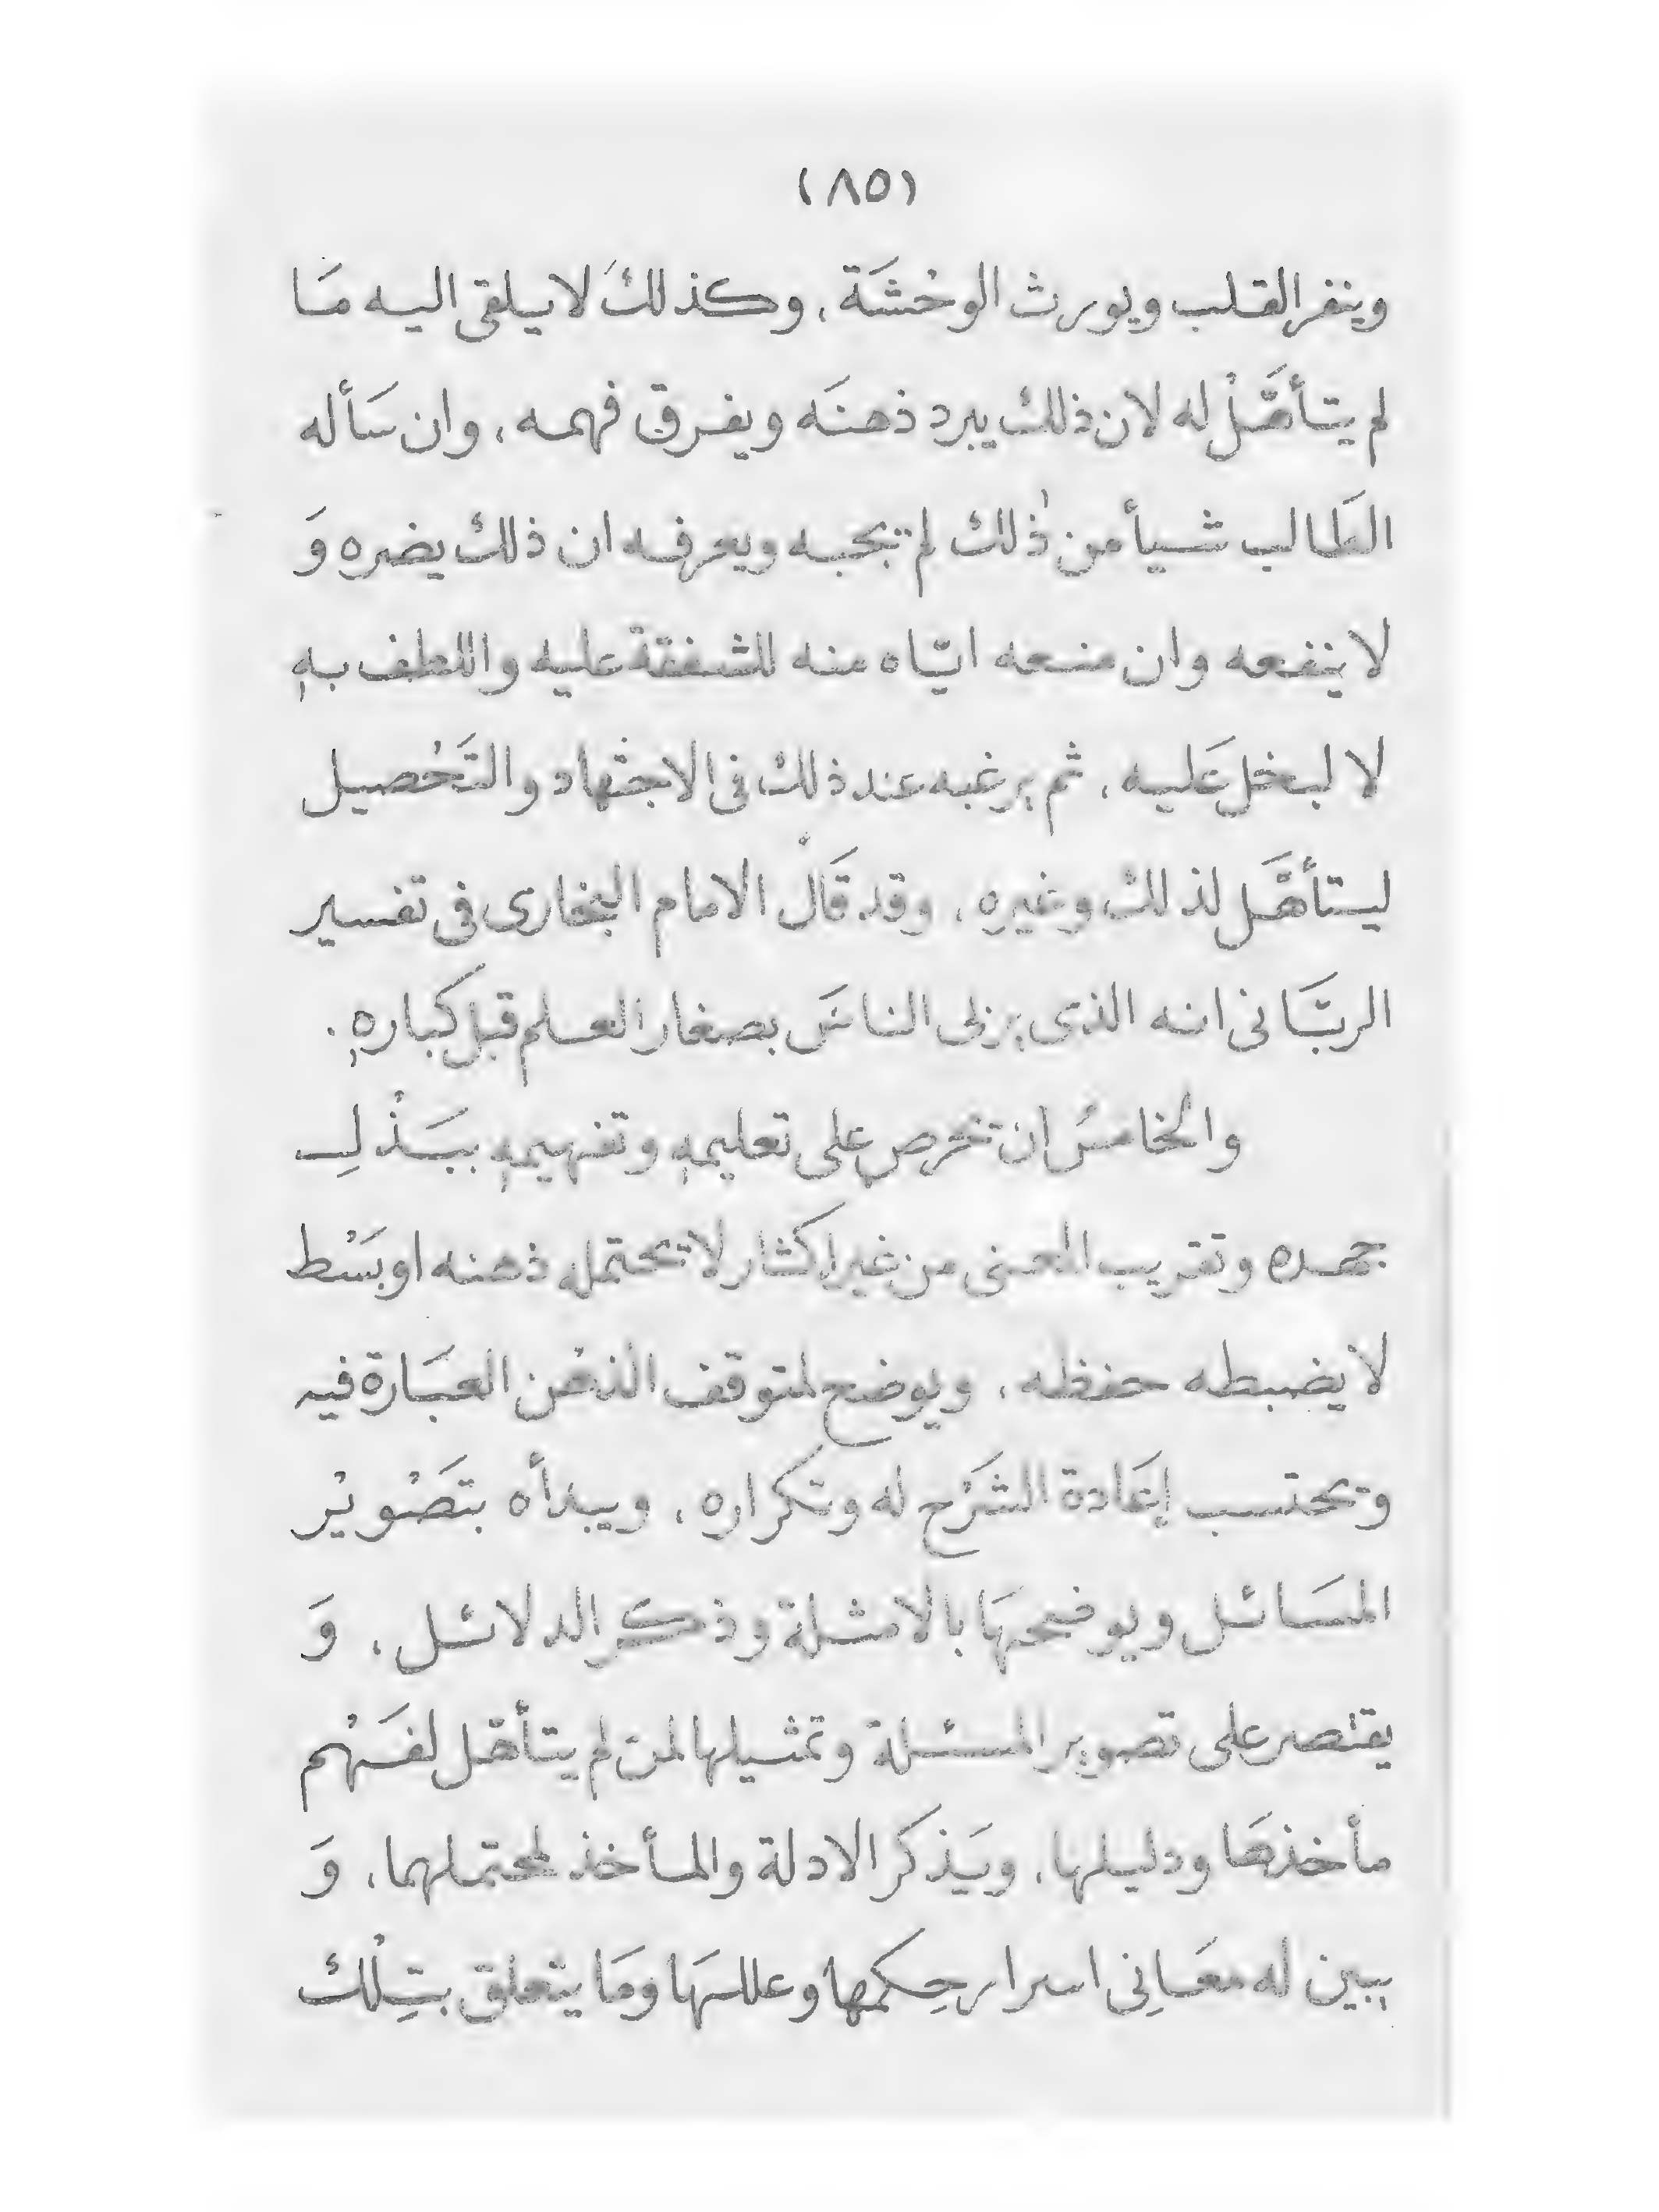 (٨٥)
وينفر القلب ويورث الوحْشَة ، وكذلكَ لا يلقى اليه مَا
لم يتأهَّلْ له لان ذلك يبرد ذهنَه ويفرق فهمه ، وان سَأله
الطَالب شيأ من ذٰلك لم يجبه ويعرفه ان ذلك يضره وَ
لا ينفعه وان منعه ايّاه منه للشفقة عليه واللطف بهٖ
لا لبخل عَليه ، ثم يرغبه عند ذلك فى الاجتهاد والتَحْصيل
ليتأهَّل لذلك وغيره ، وقد قَالْ الامام البخارى فى تفسير
الربَّانى انه الذى يربى الناسَ بصغار العلم قبل كبارهٖ .
والخامسُ ان يحرص على تعليمهٖ وتفهيمهٖ ببَذْلِ
جهده وتقريب المعنى من غير اكثار لا يحتمله ذهنه او بَسْط
لا يضبطه حفظه ، ويوضح لمتوقف الذهن العبَارة فيه
ويحتسب إعَادة الشَرْح له وتكراره ، ويبدأه بتَصْويْر
المسَائل ويوضحهَا بالامثلة وذكر الدلائل ، وَ
يقتصر على تصوير المسئلة وتمثيلها لمن لم يتأهّل لفَهْم
مأخذهَا ودليلها ، ويَذكر الادلة والمأخذ لمحتملهما ، وَ
يبين له معَانِى اسرار حِكمها وعللهَا ومَا يتعلق بتِلْك